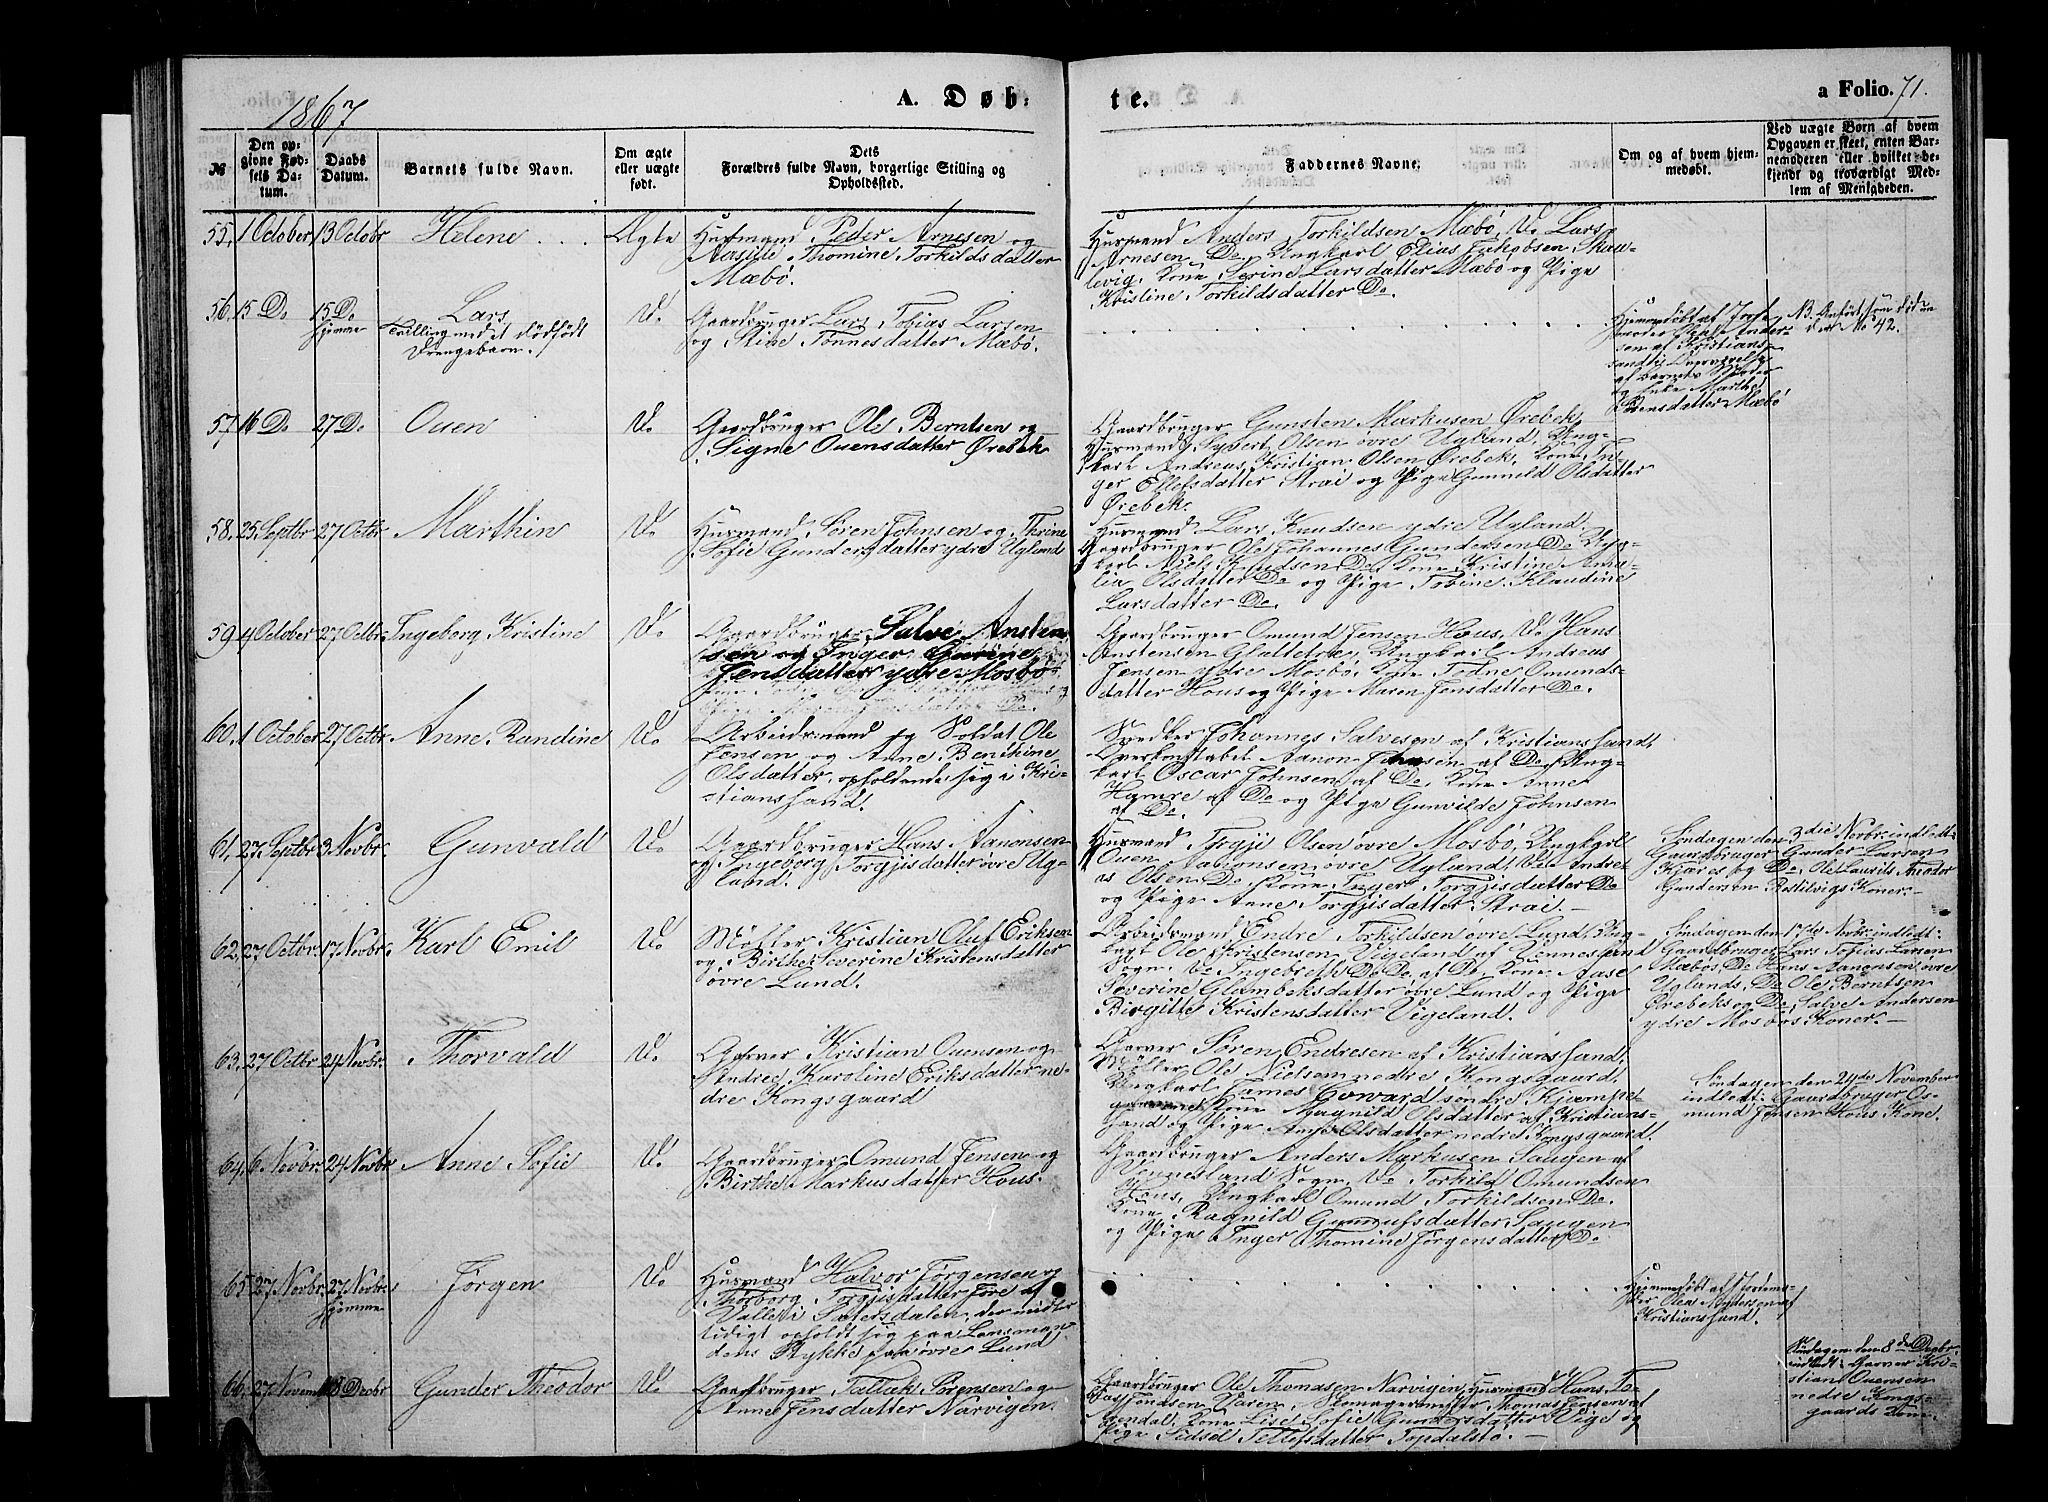 1867
A. Døb-
te.
a Folio. 71.
№
Den op-
givne Fød-
sels Da-
tum.
Daabs
Datum.
Barnets fulde Navn.
Om ægte
eller uægte
født.
Dets
Forældres fulde Navn, borgerlige Stilling og
Opholdssted.
Faddernes Navne.
Om og af hvem hjem-
medøbt.
Ved uægte Børn af hvem
Opgaven er skeet, enten Bar-
nemoderen eller hvilket be-
kjendt og troværdigt Med-
lem af Menigheden.
55. 1 October 13 Octobr Helene Ægte
Husmand Peder Arnesen og
Aasille Thomine Torkildsdatter
Mæbø.
Husmand Anders Torkildsen Mæbø, Do Lars
Arnesen Do, Ungkarl Elias Jakobsen Skau-
levig, Kone Serine Larsdatter Mæbø og Pige
Kristine Torkildsdatter Do
56. 15 Do 15 Do Lars Do
hjemme
Tvilling med et dødfødt
Drengebarn.
Gaardbruger Lars Tobias Larsen
og Stine Tønnesdatter Mæbø.
Hjemmedøbt af Jorde-
moder Olea Ander-
sen af Kristians-
sand i Overværelse
af Barnets Fader
og Enke Marthe
Larsdatter Mæbø
NB. Anført som død un-
der No 42.
57. 16 Do 27 Do Ouen Do
Gaardbruger Ole Berntsen og
Signe Ouensdatter Ørebek
Gaardbruger Gunsten Markusen Ørebek,
Husmand Syvert Olsen øvre Ugland, Ung-
karl Andreas Kristian Olsen Ørebek, Kone In-
ger Ellefsdatter Strai og Pige Gunnild Olsdatter
Ørebek.
58. 25 Septbr 27 Octbr Marthin Do
Husmand Søren Johnsen og Thrine
Sofie Gundersdatter ydre Ugland
Husmand Lars Knudsen ydre Ugland,
Gaardbruger Ole Johannes Gundersen Do Ung-
karl Niels Knudsen Do, Kone Kristine Ama-
lia Olsdatter Do og Pige Tobine Klaudine
Larsdatter Do.
59. 4 October 27 Octbr. Ingeborg Kristine Do
Gaardbruger Salve Ansten-
sen og Inger Gurine
Jensdatter ydre Mosbø
Gaardbruger Omund Jensen Hous, Do Hans
Anstensen Glattetræ, Ungkarl Andreas
Jensen ydre Mosbø, Kone Todne Omunds-
datter Hous og Pige Maren Jensdatter Do.
60. 1 October 27 Octbr. Anne Randine Do
Arbeidsmand og Soldat Ole
Jensen og Anne Benthine
Olsdatter, opholdende sig i Kri-
stianssand.
Snedker Johannes Salvesen af Kristianssand,
Overkonstabel Aanon Jensen af Do, Ung-
karl Oscar Johnsen af Do, Kone Anne
Hamre af Do og Pige Gunvilde Johnsen
af Do.
61. 27 Septbr 3 Novbr. Gunvald Do
Gaardbruger Hans Aanonsen
og Ingeborg Torgjisdatter øvre Ug-
land.
Husmand Torgji Olsen øvre Mosbø, Ungkarl
Ouen Aanonsen øvre Ugland, Do Andre-
as Olsen Do, Kone Inger Torgjisdatter Do
og Pige Anne Torgjisdatter Strai.
Søndagen den 3die Novbr. indledt:
Gaardbruger Gunder Larsen
Kjæres og Do. Ole Laurits Theodor
Gundersen Rostilvigs Koner.
62. 27 Octbr. 17 Novbr. Karl Emil Do
Møller Kristian Oluf Eriksen
og Birthe Severine Kristensdatter
øvre Lund.
Arbeidsmand Endre Torkildsen øvre Lund, Ung-
karl Ole Kristensen Vigeland af Vennesland
Sogn, Do Ingebreth Do Do af Do, Kone Aase
Severine Glambeksdatter øvre Lund og Pige
Birgitte Kristensdatter Vigeland.
Søndagen den 17de Novbr. indledt:
Gaardbruger Lars Tobias Larsen
Mæbøs, Do Hans Aanonsen øvre
Uglands, Do Ole Berntsen
Ørebeks og Do Salve Andersen
ydre Mosbøs Koner.
63. 27 Octbr 24 Novbr. Thorvald Do
Garver Kristian Ouensen og
Andree Karoline Eriksdatter ne-
dre Kongsgaard
Garver Søren Endresen af Kristianssand,
Møller Ole Nielsen nedre Kongsgaard,
Ungkarl James Coward søndre Kjempe-
Kone Magnild Olsdatter af Kristians-
sand og Pige Anne Olsdatter nedre Kongsgaard.
Søndagen den 24de November
indledt: Gaardbruger Os-
mund Jensen Hous Kone.
64. 6 Novbr. 24 Novbr Anne Sofie Do
Gaardbruger Omund Jensen og
Birthe Markusdatter Hous.
Gaardbruger Anders Markusen Saugen af
Vennesland Sogn, Do Torkild Omundsen
Hous, Ungkarl Omund Torkildsen Do.
Kone Ragnild Gunnufsdatter Saugen
og Pige Inger Thomine Jørgensdatter Do
65. 27 Novbr. 27 Novbr. Jørgen Do
hjemme
Husmand Halvor Jørgensen og
Thorborg Torgjisdatter Fore af
Valle i Sætersdalen, der midler-
tidigt opholdt sig paa Lensman-
dens Stykke paa øvre Lund
Hjemmedøbt af Jordemo-
der Olea Andersen af
Kristianssand.
66. 27 Novem 8 Decbr Gunder Theodor Do
Gaardbruger Tallak Sørensen og
Anne Jensdatter Narvigen.
Gaardbruger Ole Thomasen Narvigen, Husmand Hans Te-
Varen, Skomagermester Thomas Jensen af
Kone Lise Sofie Gundersdatter Vige og
Pige Sidsel Tellefsdatter Topdalsbø.
Søndagen den 8de Decbr.
indledt: Garver Kri-
stian Ouensen
nedre Kongs-
gaards Kone.